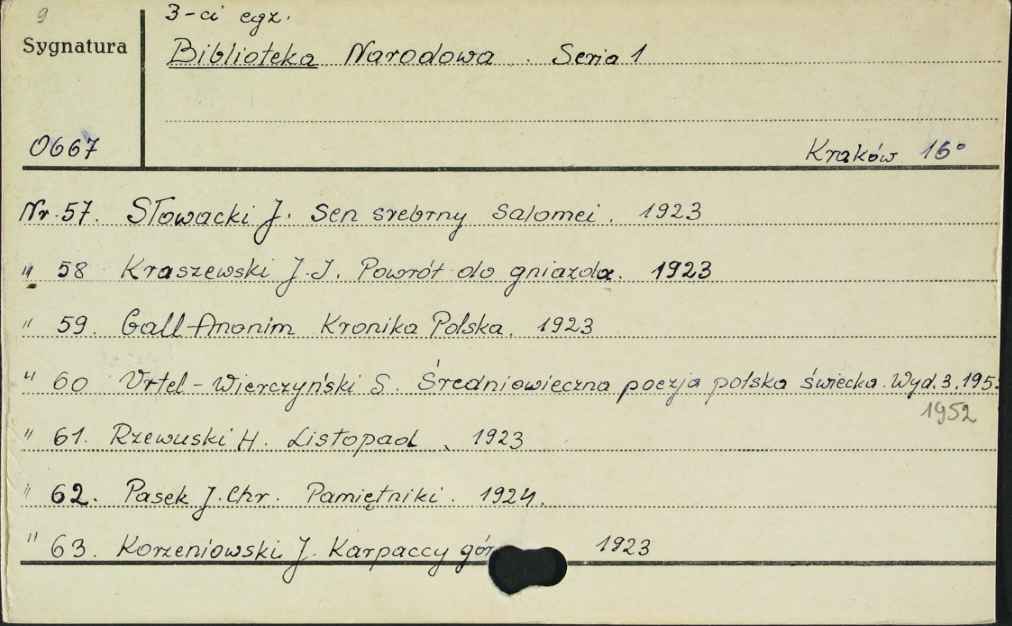 9
3-ci egz.
Sygnatura
Biblioteka Narodowa. Seria 1
0667
Kraków 16°
Nr. 57. Słowacki J. Sen srebrny Salomei. 1923
" 58 Kraszewski J.I. Powrót do gniazda. 1923
" 59. Gall-Anonim Kronika Polska. 1923
" 60 Vrtel-Wierczyński S. Średniowieczna poezja polska świecka. Wyd. 3. 195
1952
" 61. Rzewuski H. Listopad. 1923
" 62. Pasek J. Chr. Pamiętniki. 1924.
" 63. Korzeniowski J. Karpaccy gór 1923